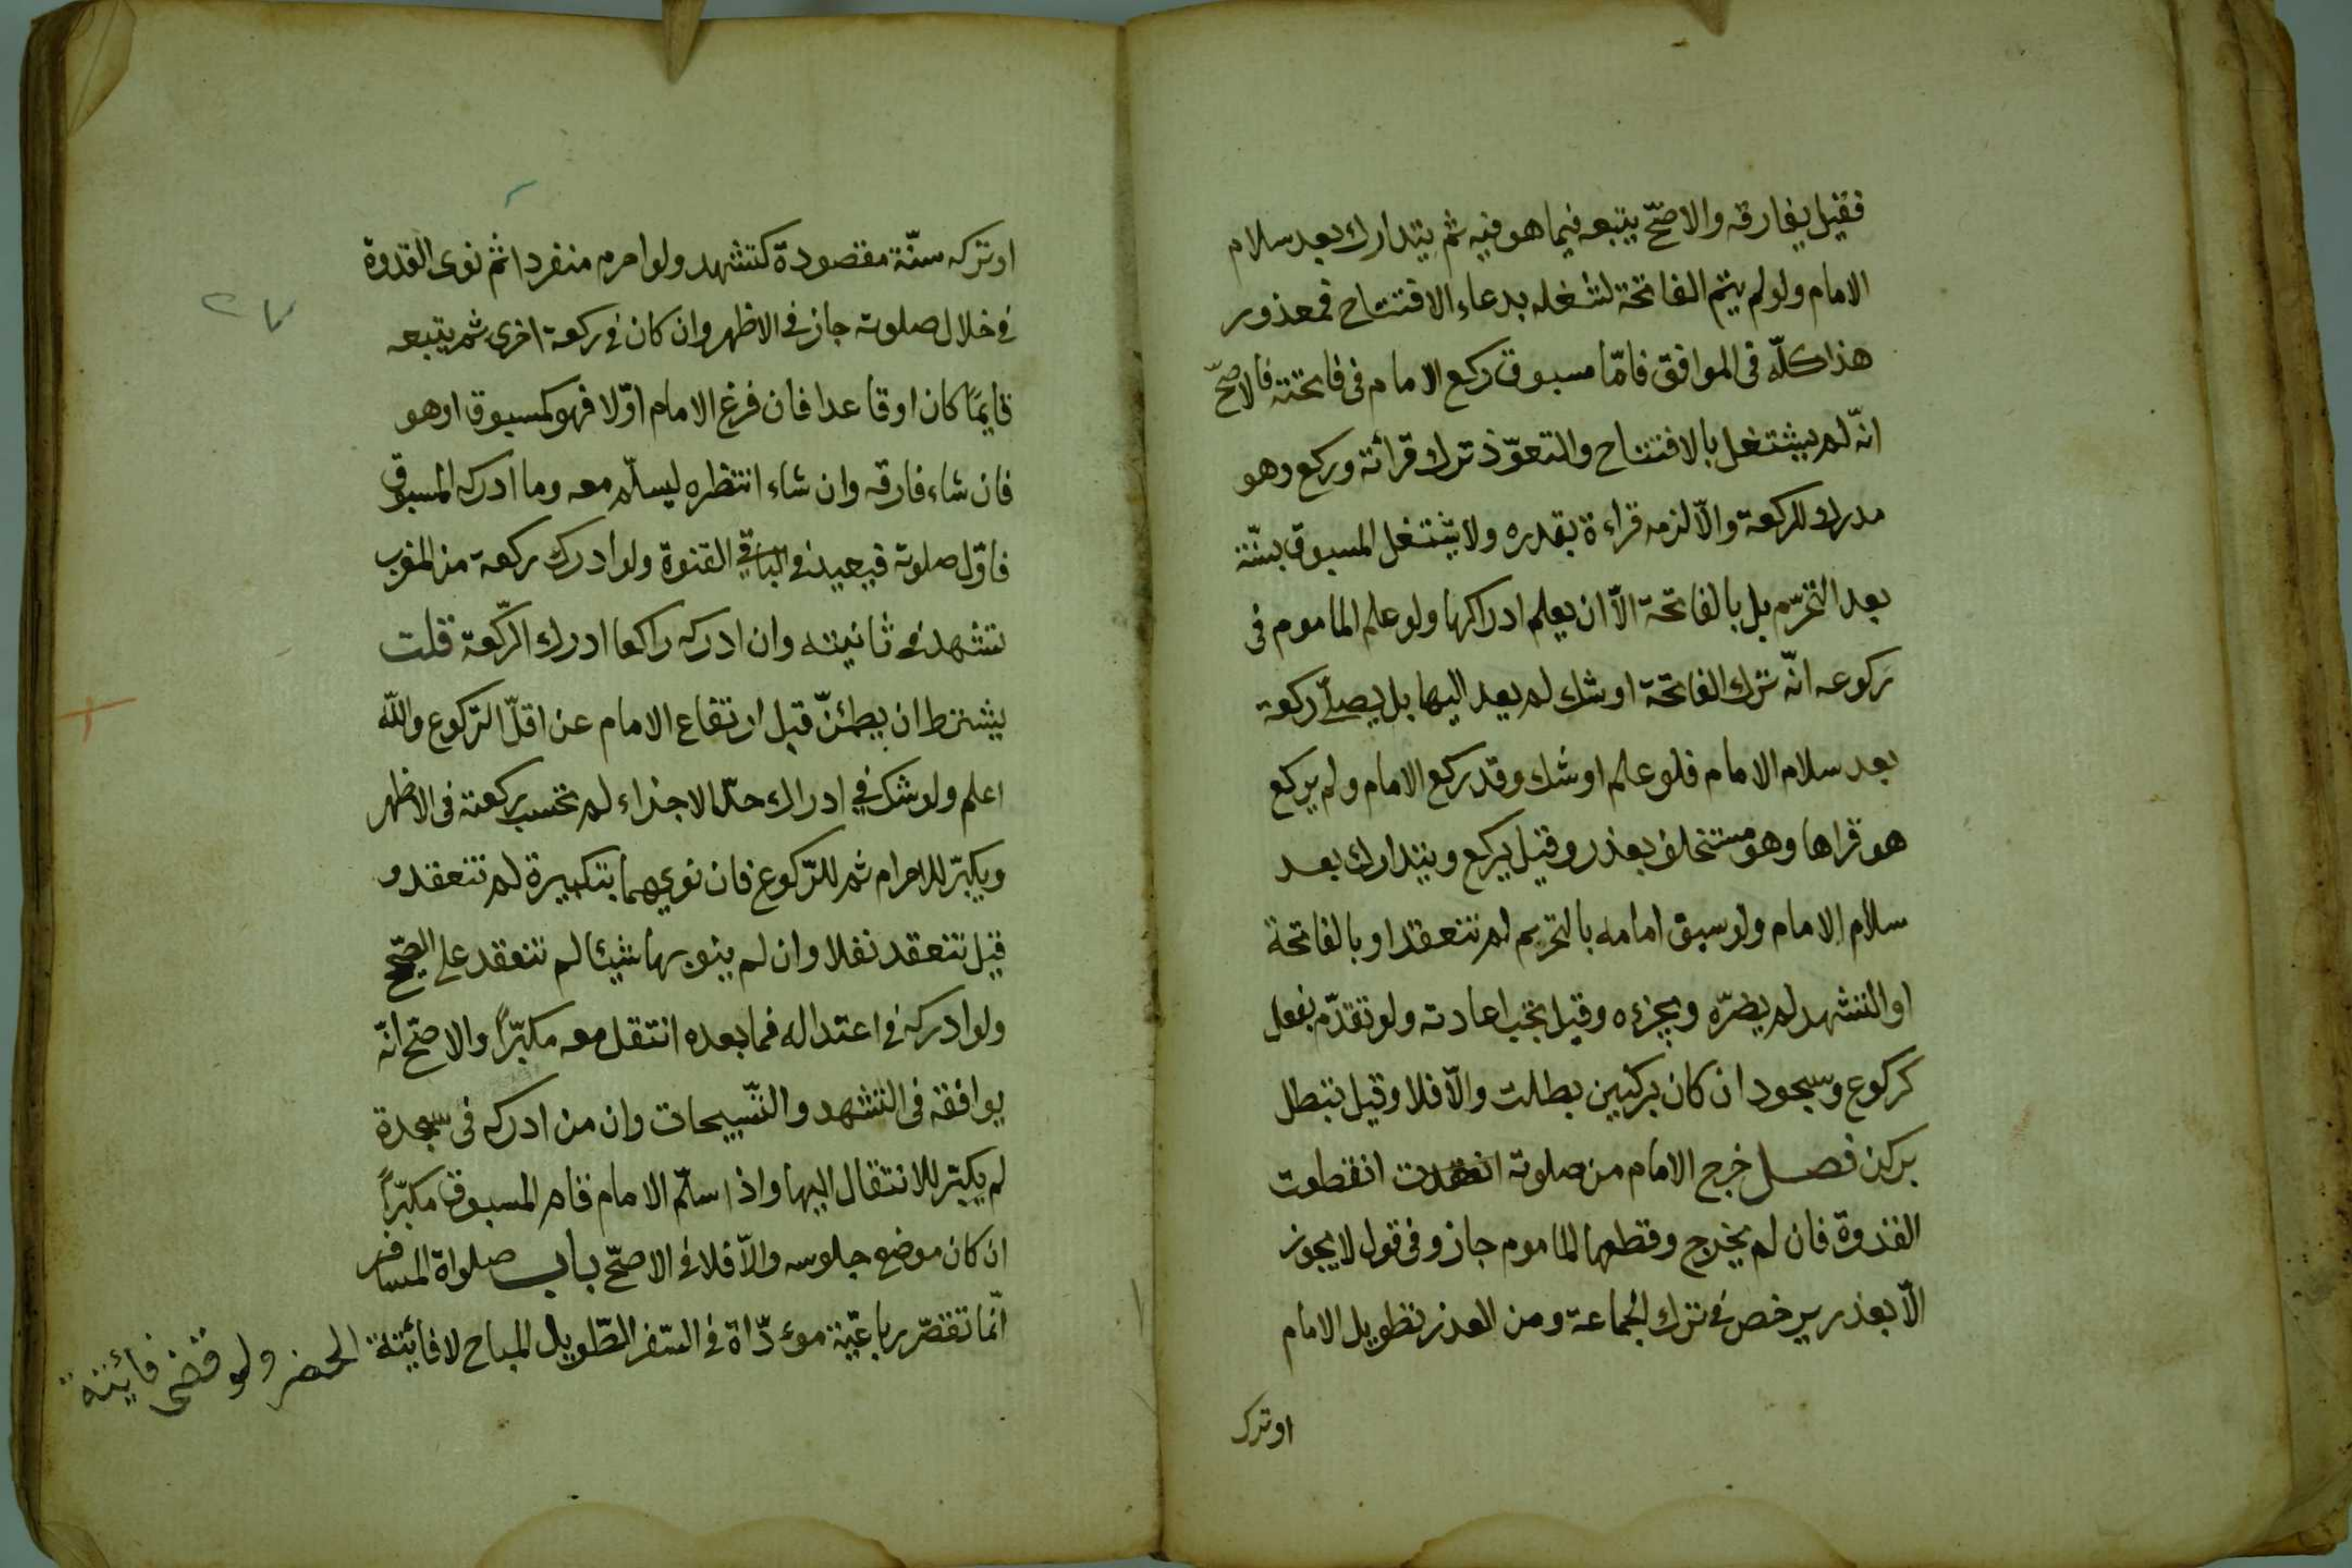 فقيل يفارقه والاصحّ يتبعه فيما هو فيه ثم يتدارك بعد سلام
الامام ولو لم يتم الفاتحة لشغله بدعاء الافتتاح فمعذور
هذا كلّه فى الموافق فامّا مسبوق ركع الامام فى فاتحته فالاصحّ
انّه لم يشتغل بالافتتاح والتعوّذ ترك قرأته وركع وهو
مدرك للركعة والّا لزمه قراءة بقدره ولا يشتغل المسبوق بسنّة
بعد التحرّم بل بالفاتحة الّا ان يعلم ادراكها ولو علم الماموم فى
ركوعه انّه ترك الفاتحة او شك لم يعد اليها بل يصلّي ركعة
بعد سلام الامام فلو علم او شك وقد ركع الامام ولم يركع
هو قراها وهو مستخلف بعذر وقيل يركع ويتدارك بعد
سلام الامام ولو سبق امامه بالتحريم لم تنعقد او بالفاتحة
او التشهد لم يضرّه ويجزءه وقيل تجب اعادته ولو تقدّم بفعل
كركوع وسجود ان كان بركنين بطلت والّا فلا وقيل تبطل
بركن فصل خرج الامام من صلوته انقطعت
القدوة فان لم يخرج وقطعها الماموم جاز وفى قول لا يجوز
الّا بعذر يرخص فى ترك الجماعة ومن العذر تطويل الامام
او ترك
او تركه سنّة مقصودة كتشهد ولو احرم منفردا ثم نوى القدوة
فى خلال صلوته جاز فى الاظهر وان كان فى ركعة اخرى ثم يتبعه
قايمًا كان او قاعدا فان فرغ الامام اوّلا فهو كمسبوق او هو
فان شاء فارقه وان شاء انتظره ليسلّم معه وما ادركه المسبوق
فاوّل صلوته فيعيد فى الباقي القنوة ولو ادرك ركعة من المغرب
تشهد فى ثانيته وان ادركه راكعا ادرك الركّعة قلت
يشترط ان يطمئنّ قبل ارتفاع الامام عن اقلّ الرّكوع والله
اعلم ولو شك في ادراك حدّ الاجزاء لم تحسب ركعته فى الاظهر
ويكبّر للاحرام ثم للرّكوع فان نويهما بتكبيرة لم تنعقد و
قيل تنعقد نفلا وان لم ينو بها شيئا لم تنعقد على الصّحيح
ولو ادركه فى اعتداله فما بعده انتقل معه مكبّرًا والاصحّ انّه
يوافقه فى التشهد والتّسبيحات وان من ادركه فى سجدة
لم يكبّر للانتقال اليها واذا سلّم الامام قام المسبوق مكبّرًا
ان كان موضع جلوسه والّا فلا فى الاصحّ باب صلواة المسافر
انّما تقصّر رباعيّة موءدّاة فى السّفر الطّويل المباح لا فائتة الحضر ولو قضى فائتة